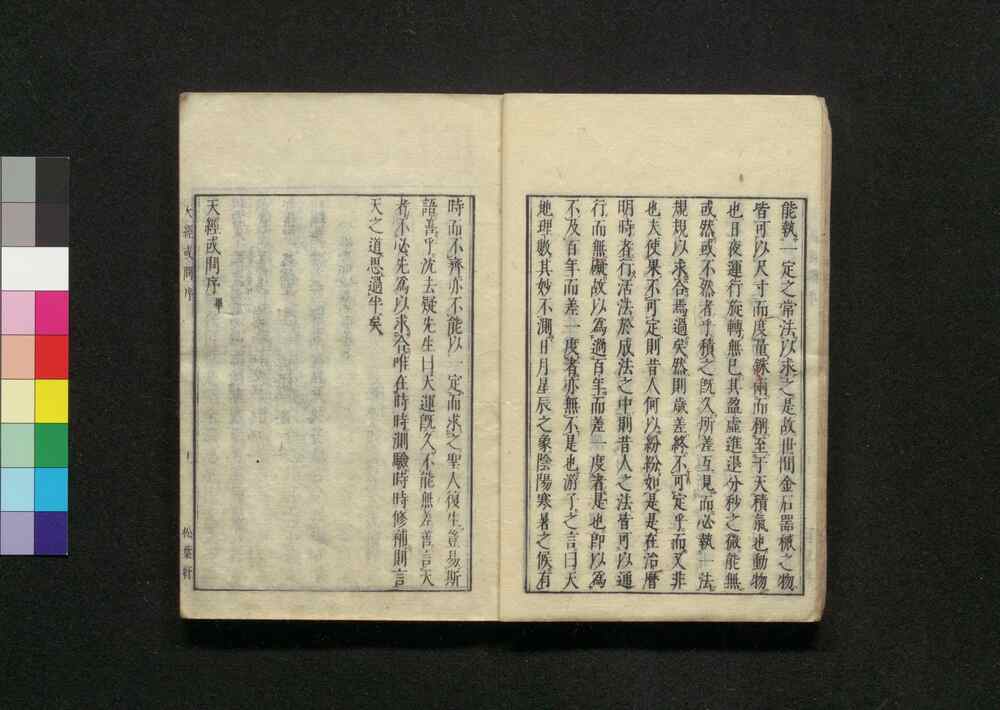 能執一定之常法以求之是故世間金石器械之物
皆可以尺寸而度量銖兩而稱至于天積氣也動物
也日夜運行旋轉無已其盈虛進退分秒之微能無
或然或不然者乎積之既久所差互見而必執一法
規規以求合焉過矣然則歲差終不可定乎而又非
也夫使果不可定則昔人何以紛紛如是是在治曆
明時者行活法於成法之中則昔人之法皆可以通
行而無礙故以為過百年而差一度者是也即以為
不及百年而差一度者亦無不是也游子之言曰天
地理數其妙不測日月星辰之象陰陽寒暑之候有
時而不齊亦不能以一定而求之聖人復生豈易斯
語善乎沈去疑先生曰天運既久不能無差善言天
者不必先為以求合唯在時時測驗時時修補則言
天之道思過半矣
天經或問序畢
天經或問序
松葉軒